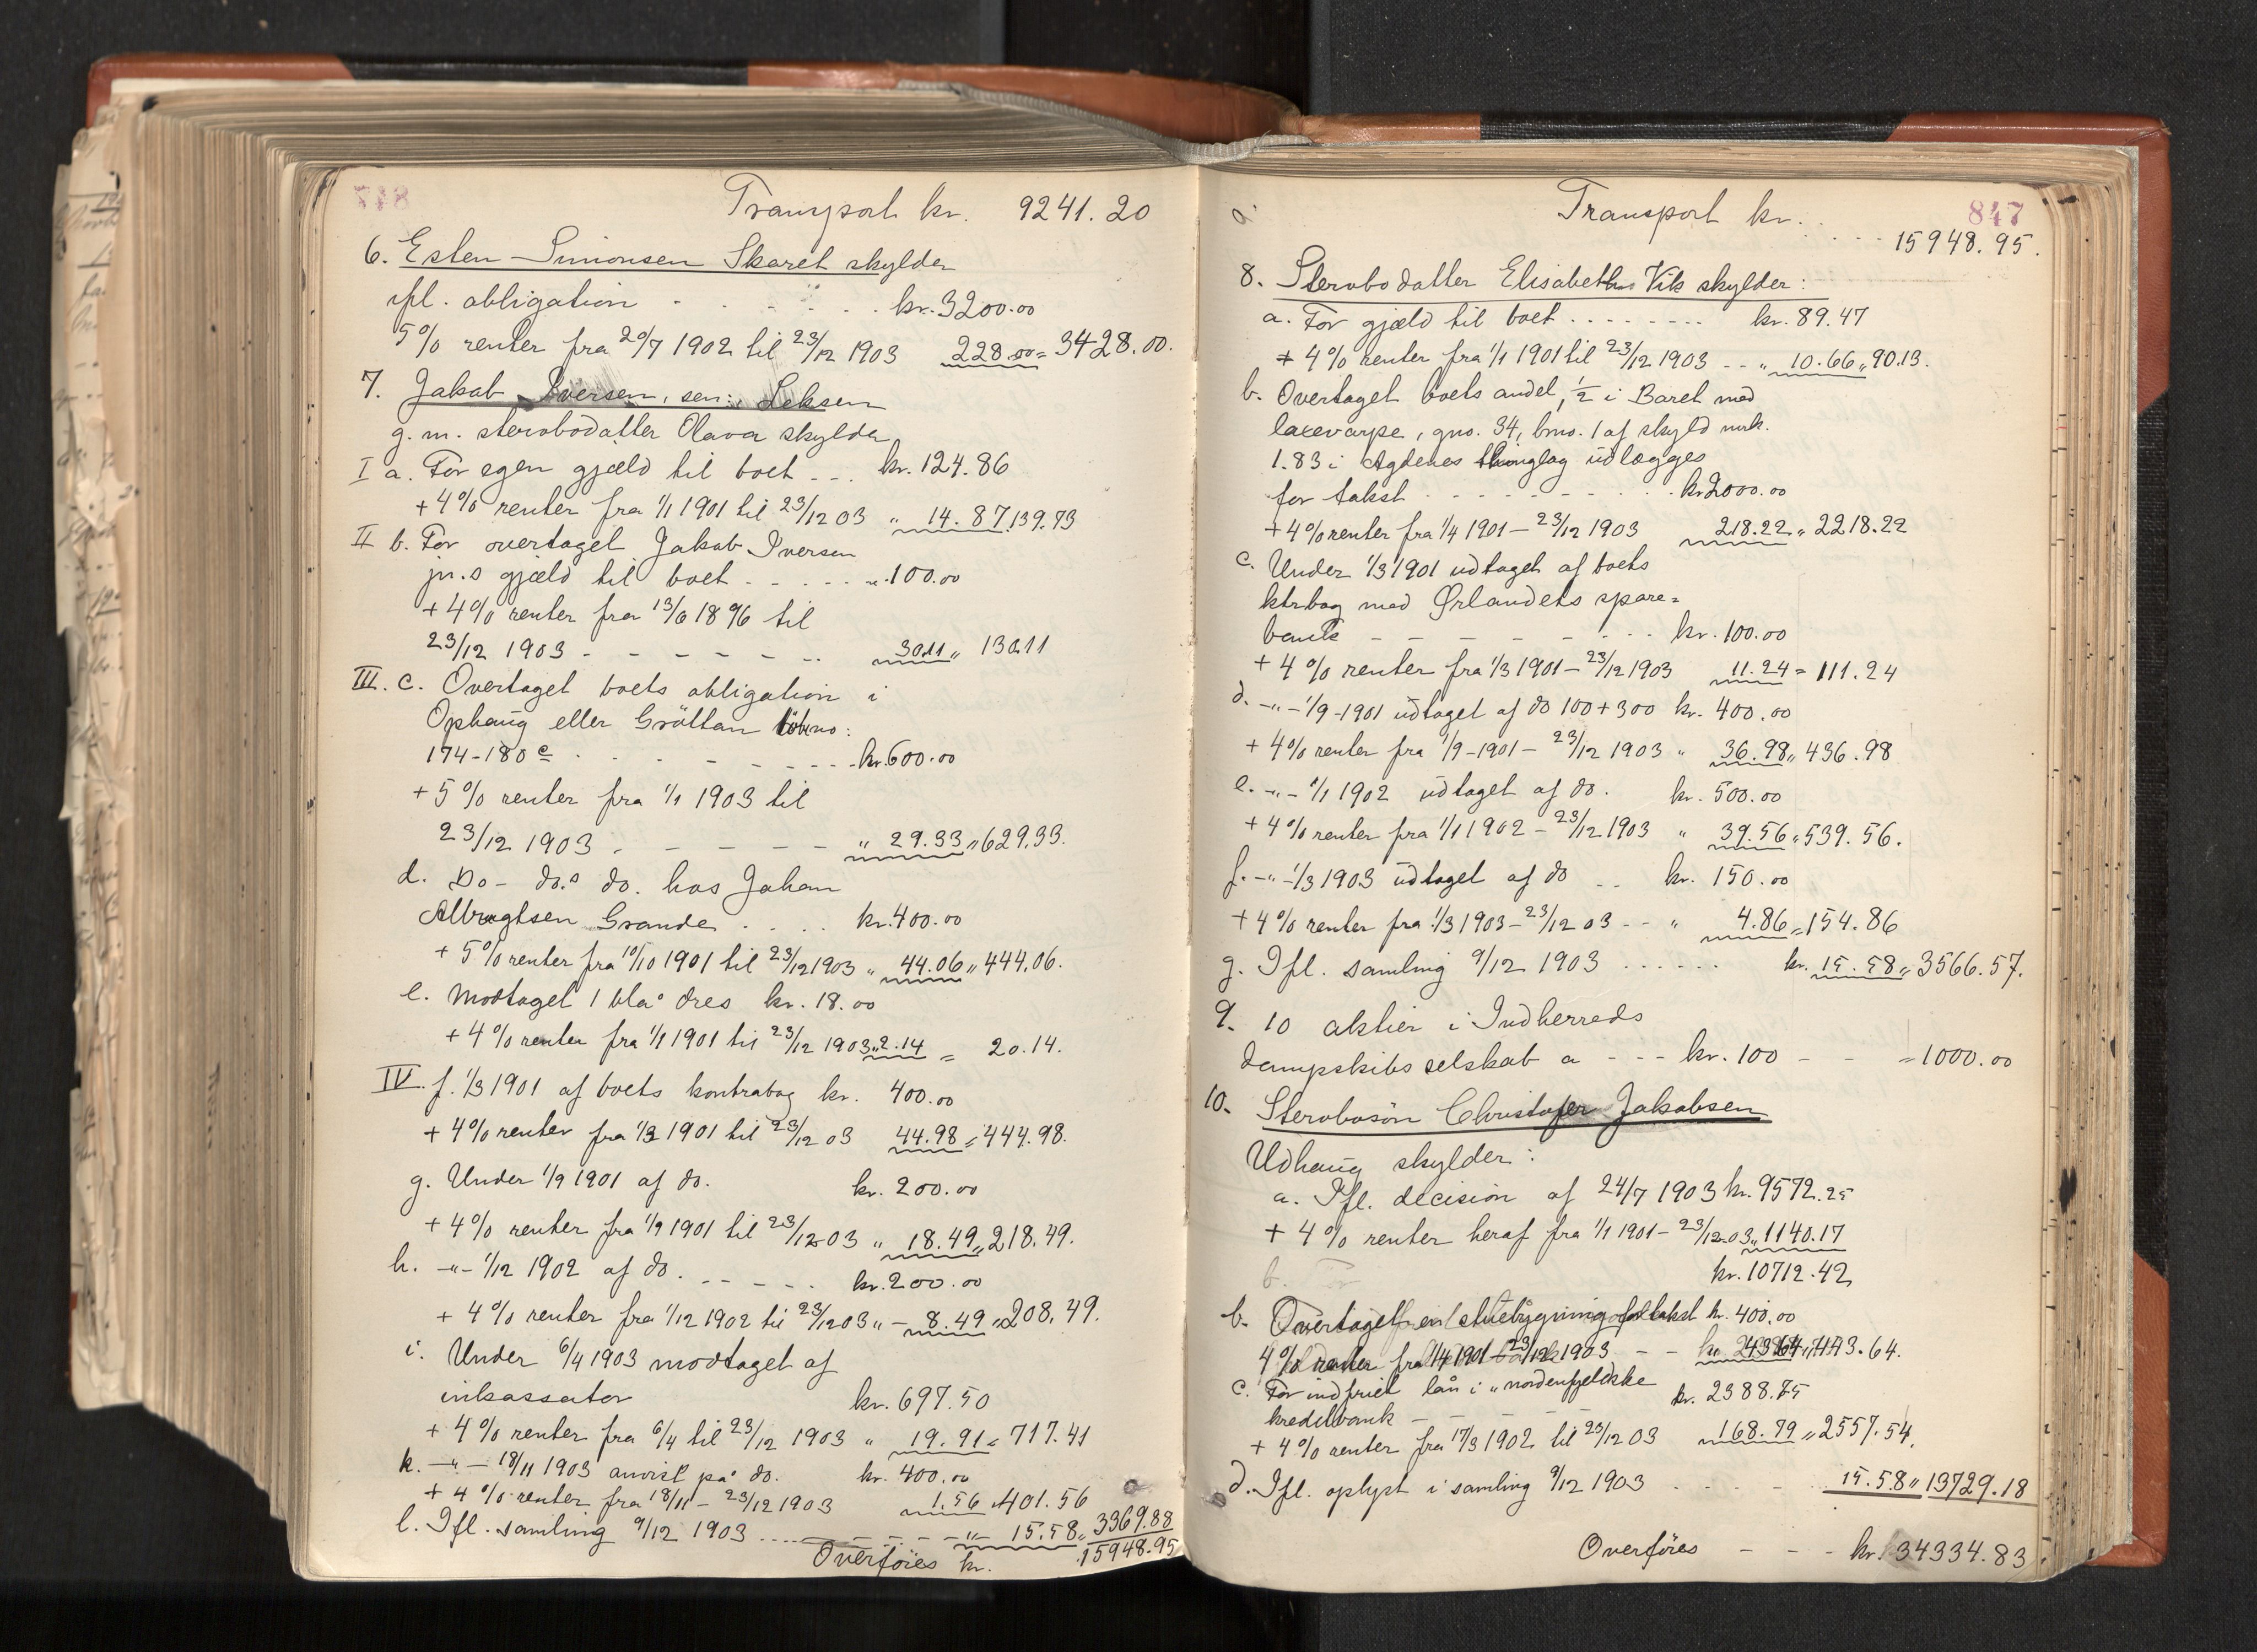 718
Transport kr. 9241.20
6. Esten Simonsen Skaret skylder
ifl. obligation - - - - . kr. 3200.00
5% renter fra 20/7 1902 til 23/12 1903 228.00 = 3428.00.
7. Jakob Iversen, sen:, Leksen
g. m. stervbodatter Olava skylder
I a. For egen gjæld til boet - - . kr. 124.86
+ 4% renter fra 1/1 1901 til 23/12 03 " 14.87 139.73
II b. For overtaget Jakob Iversen
jn.s gjæld til boet - - - - - " 100.00
+ 4% renter fra 13/6 1896 til
23/12 1903 - - - - - - .. 30.11 " 130.11
III. c. Overtaget boets obligation i
Ophaug eller Gröttan löbno:
174-180 c . - - - - - - - - kr. 600.00
+ 5% renter fra 1/1 1903 til
23/12 1903 . - - - - - " 29.33 " 629.33.
d. Do - do.s do. hos Johan
Albregtsen Grande . . . . kr. 400.00
+ 5% renter fra 10/10 1901 til 23/12 1903 " 44.06 " 444.06.
e. Modtaget 1 blå dres kr. 18.00
+ 4% renter fra 1/1 1901 til 23/12 1903 " 2.14 = 20.14.
IV. f. 1/3 1901 af boets kontrabog kr. 400.00
+ 4% renter fra 1/3 1901 til 23/12 03 44.98 = 444.98.
g. Under 1/9 1901 af do. kr. 200.00
+ 4% renter fra 1/9 1901 til 23/12 03 " 18.49 " 218.49.
h. -"- 1/12 1902 af do. - - - - - kr. 200.00
+ 4% renter fra 1/12 1902 til 23/12 03 " - 8.49 " 208.49.
i. Under 6/4 1903 modtaget af
inkassator kr. 697.50
+ 4% renter fra 6/4 til 23/12 1903 " 19.91 = 717.41
k. -"- 18/11 1903 anvist på do. kr. 400.00
+ 4% renter fra 18/11 - 23/12 1903 1.56 " 401.56
l. Ifl. samling 9/12 1903 ... - - - - " - 15.58 " 3369.88
Overföres kr. 15948.95
9.
847
Transport kr. . . - - - 15948.95.
8. Stervbodatter Elisabeth Vik skylder:
a. For gjæld til boet . . - - - - - kr. 89.47
+ 4% renter fra 1/1 1901 til 23/12 1903 - - " 10.66 " 90.13.
b. Overtaget boets andel, 1/2 i Baret med
laxevarpe, gno. 34, bno. 1 af skyld mrk.
1.83 i Agdenes thinglag udlægges
for takst - - - - - - - . . kr 2000.00
+ 4% renter fra 1/4 1901 - 23/12 1903 218.22 " 2218.22
c. Under 1/3 1901 udtaget af boets
ktrbog med Ørlandets spare=
bank - - - - - - . . kr. 100.00
+ 4% renter fra 1/3 1901 - 23/12 1903 11.24 = 111.24
d. -"- 1/9-1901 udtaget af do 100+300 kr. 400.00
+ 4% renter fra 1/9-1901 - 23/12 1903 " 36.98 " 436.98
e. -"- 1/1 1902 udtaget af do. kr. 500.00
+ 4% renter fra 1/1 1902 - 23/12 1903 " 39.56 " 539.56.
f. -"- 1/3 1903 udtaget af do .. kr. 150.00
+ 4% renter fra 1/3 1903 - 23/12 03 - - " 4.86 = 154.86
g. Ifl. samling 9/12 1903 . . . . . . kr. 15.58 " 3566.57.
9. 10 aktier i Indherreds
dampskibsselskab a - - - kr. 100 - - = 1000.00
10. Stervbosön Christofer Jakobsen
Udhaug skylder:
a. Ifl. decision af 24/7 1903 kr. 9572.25
+ 4% renter heraf fra 1/1 1901 - 23/12-03 " 1140.17
kr. 10712.42
b. For
b. Overtaget en stuebygning for takst kr. 400.00
4% renter fra 1/4 1901 - 23/12 1903 - - 43.64 " 443.64.
c. For indfriet lån i "nordenfjeldske
kreditbank - - - - kr. 2388.75
+ 4% renter fra 17/3 1902 til 23/12 03 168.79 " 2557.54.
d. Ifl. oplyst i samling 9/12 1903 . . - - . 15.58 " 13729.18
Overföres - - - kr. 34334.83